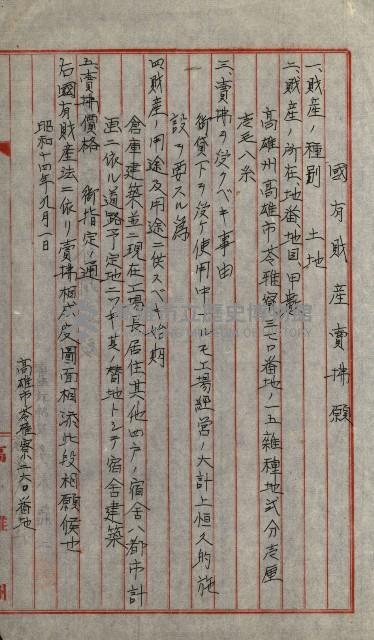 國有財産賣拂願
一、財産ノ種別 土地
二、財産ノ所在地番地目甲數
高雄州高雄市苓雅寮三七〇番地ノ一五雜種地貳分壱厘
壱毛八糸
三、賣拂ヲ受クベキ事由
御貸下ヲ受ケ使用中ナルモ工場經營ノ大計上恒久的施
設ヲ要スル為
四財産ノ用途及用途ニ供スベキ始期
倉庫建築並ニ現在工場長居住其他四戸ノ宿舎ハ都市計
画ニ依ル道路予定地ニツキ其ノ替地トシテ宿舎建築
五賣拂價格 御指定ノ通
右國有財産法ニ依リ賣拂相成度圖面相添此段相願候也
昭和十四年九月一日
高雄市苓雅寮二六〇番地
高雄州